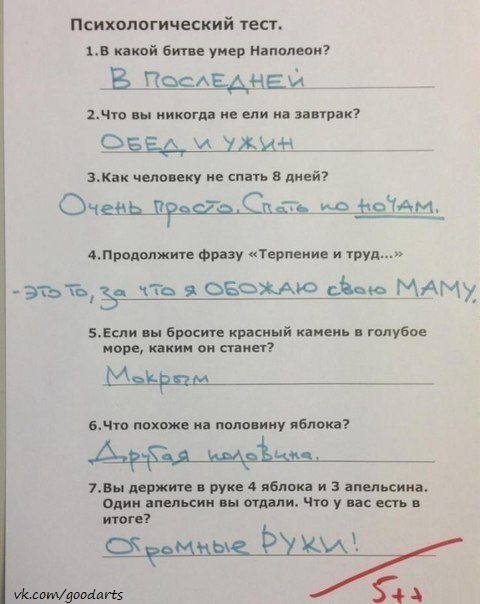 Психологический тест.
1.В какой битве умер Наполеон?
В ПОСЛЕДНЕЙ
2.Что вы никогда не ели на завтрак?
ОБЕД И УЖИН
3.Как человеку не спать 8 дней?
Очень просто. Спать по НОЧАМ.
4.Продолжите фразу «Терпение и труд...»
- ЭТО ТО, за что я ОБОЖАЮ свою МАМУ.
5.Если вы бросите красный камень в голубое
море, каким он станет?
Мокрым
6.Что похоже на половину яблока?
Другая половина.
7.Вы держите в руке 4 яблока и 3 апельсина.
Один апельсин вы отдали. Что у вас есть в
итоге?
Огромные РУКИ!
5++
vk.com/goodarts